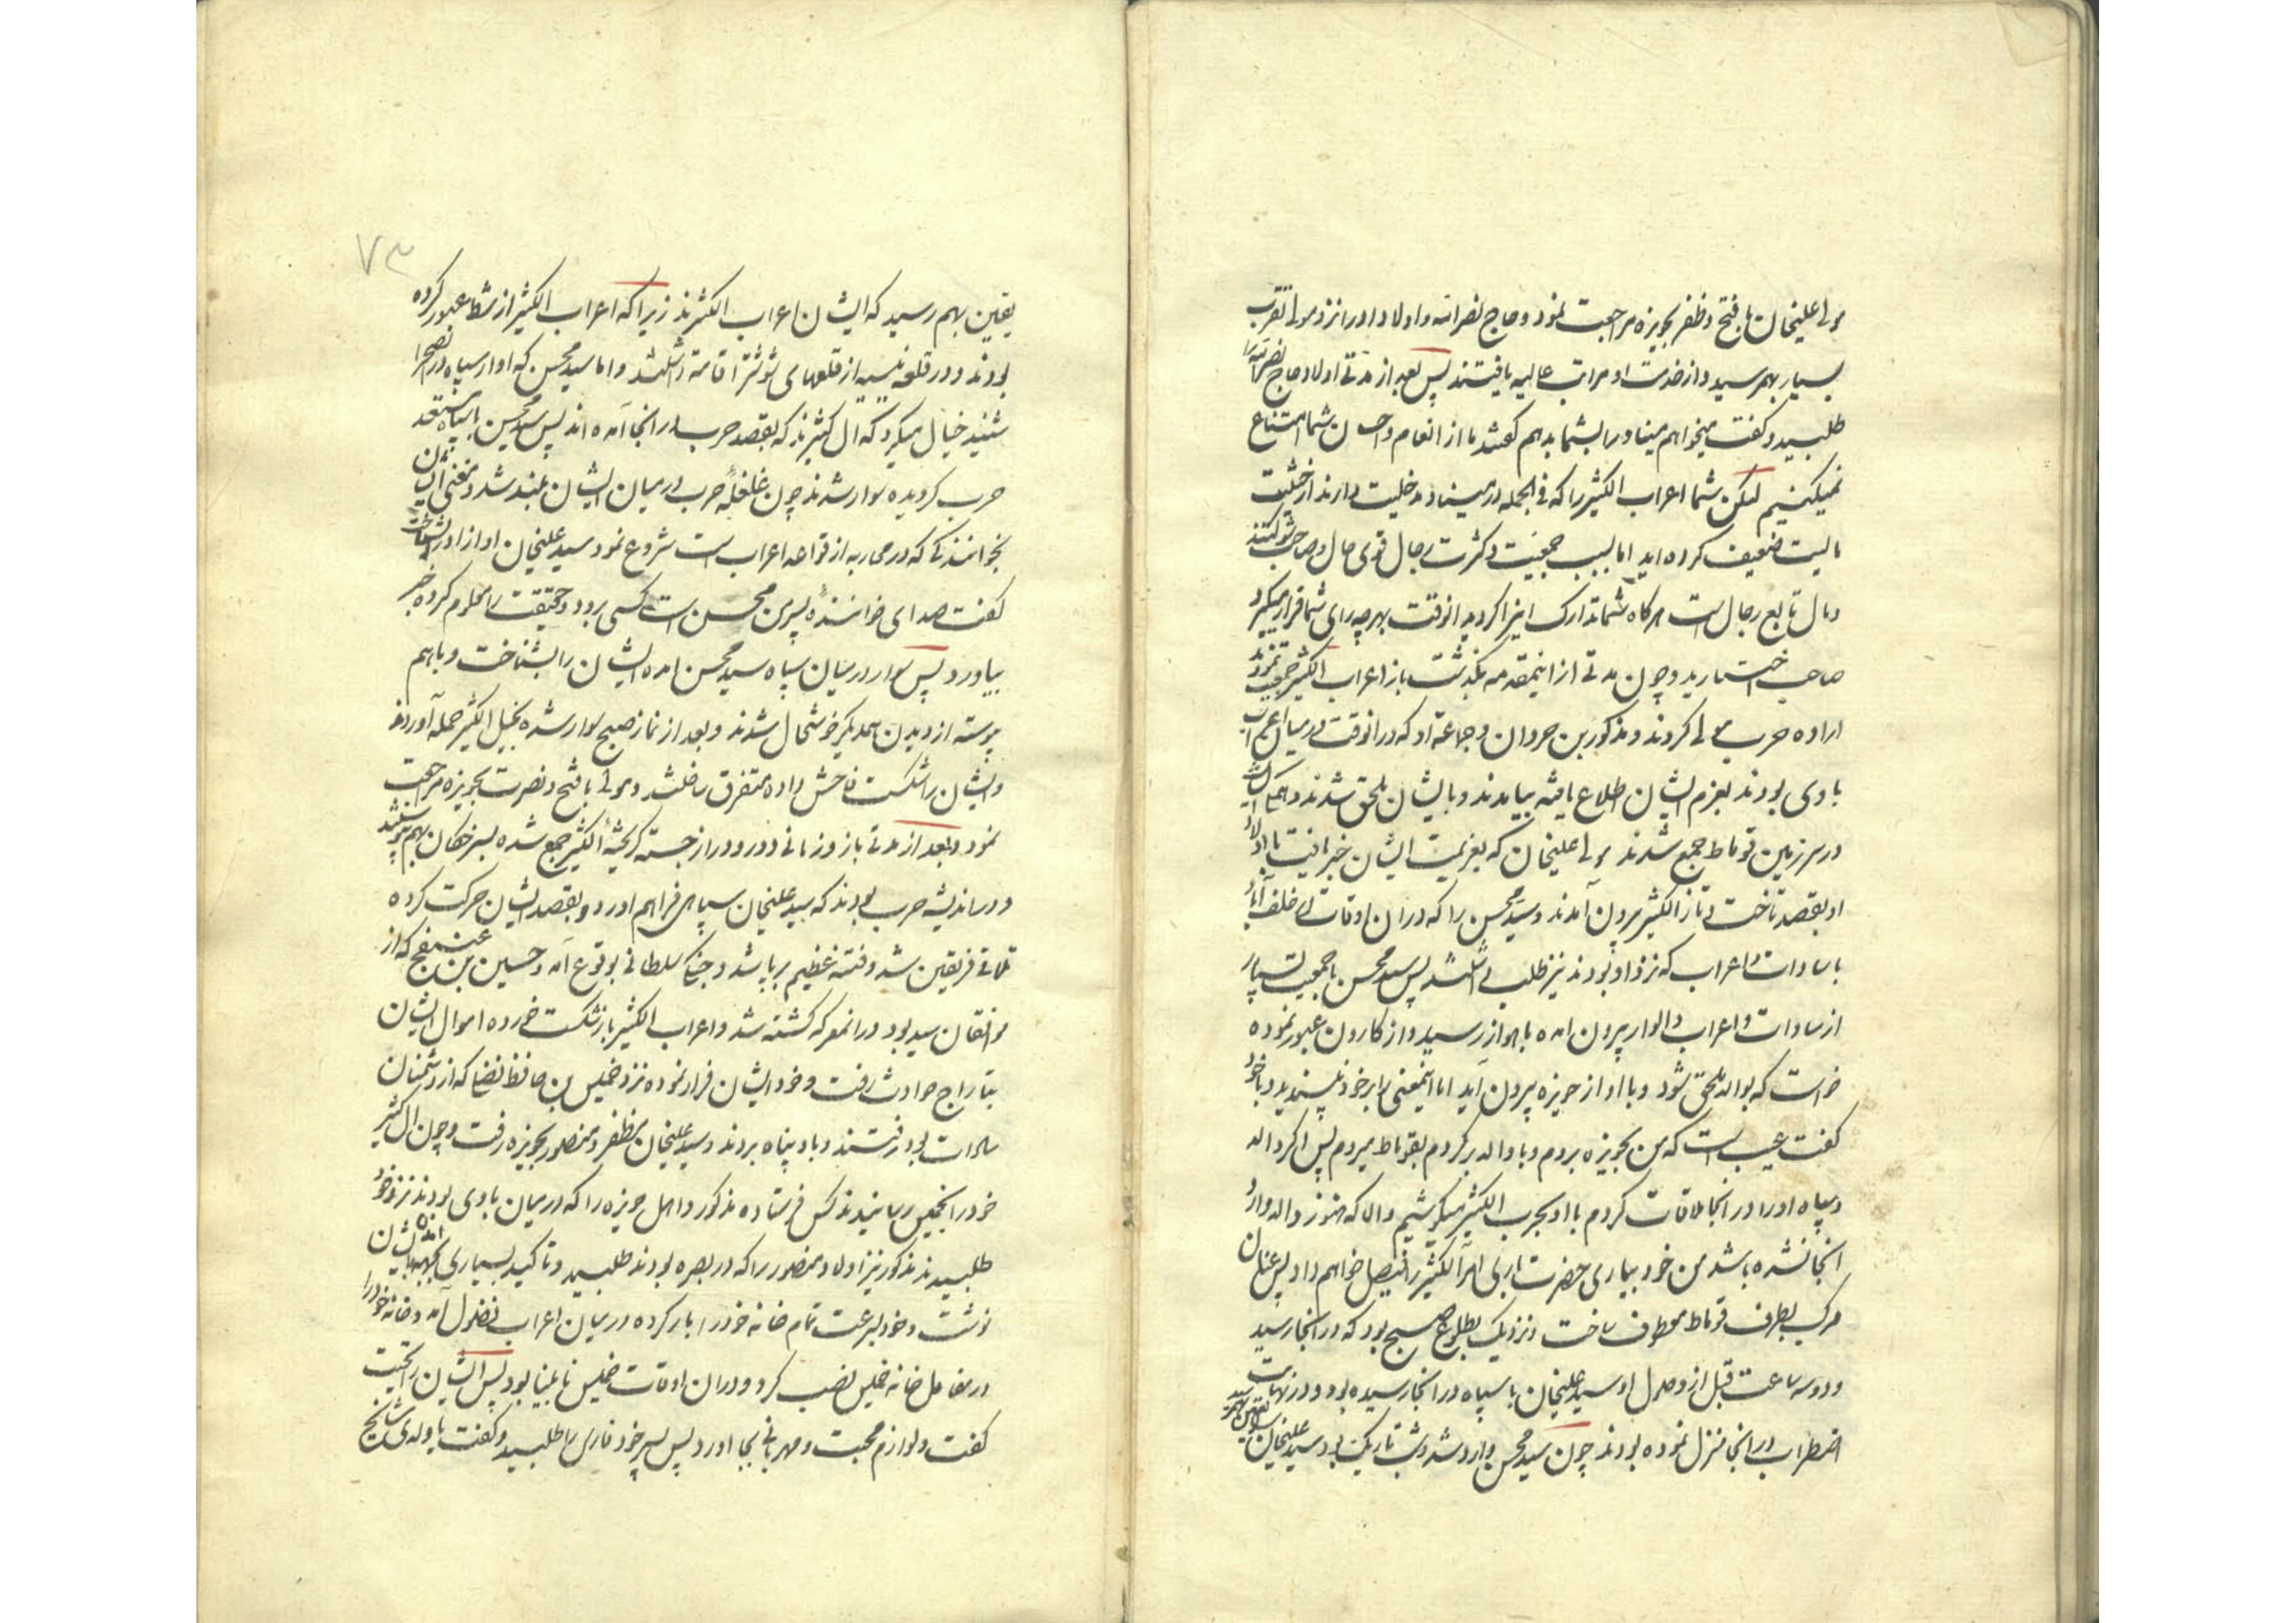 مولی علیخان با فتح و ظفر بحویزه مراجعت نمود و حاج نصرالله و اولاد او را نزد مولی تقرب
بسیار بهمرسید و از خدمت او مراتب عالیه یافتند پس بعد از مدتی اولاد حاج نصرالله را
طلبید و گفت میخواهم میناو را بشما بدهم گفتند ما از انعام و احسان شما امتناع
نمیکنیم لیکن شما اعراب الکثیر را که فی الجمله در میناو مدخلیت دارند از حیثیت
مالیت ضعیف کرده اید اما بسبب جمعیت و کثرت رجال قوی حال و صاحب شوکتند
و مال تابع رجال است هرگاه شما تدارک اینرا کردید انوقت بهرچه رای شما قرار میگیرد
صاحب اختیارید و چون مدتی از اینمقدمه بگذشت باز اعراب الکثیر جمعیت نمودند
اراده حرب مولی کردند و مذکور بن حردان و جماعة او که در انوقت در میان اعراب
باوی بودند بعزم ایشان اطلاع یافته بیامدند و با ایشان ملحق شدند و همگی
در سرزمین قوماط جمع شدند مولی علیخان که بعزیمت ایشان خبر یافت با اولاد
او بقصد تاخت و تاز الکثیر بیرون آمدند و سید محسن را که در ان اوقات در خلف آباد
با سادات و اعراب که نزد او بودند نیز طلب داشتند پس سید محسن با جمعیت بسیار
از سادات و اعراب و الوار بیرون امده باهواز رسید و از کارون عبور نموده
خواست که بوالد ملحق شود و با او از حویزه بیرون آید اما اینمعنی را بر خود نپسندید و با خود
گفت عیب است که من بحویزه بروم و با والد برگردم بقوماط میروم پس اگر والد
و سپاه او را در انجا ملاقات کردم با او بحرب الکثیر میکوشیم والا که هنوز والد وارد
انجا نشده باشد من خود بیاری حضرت باری امر الکثیر را فیصل خواهم داد پس عنان
مرکب بطرف قوماط معطوف ساخت و نزدیک بطلوع صبح بود که در انجا رسید
و دو سه ساعت قبل از وصول او سید علیخان با سپاه در انجا رسیده بود و در نهایت
اضطراب در انجا منزل نموده بودند چون سید محسن وارد شد و شب تاریک بود سید علیخان
۷۳
یقین بهم رسید که ایشان اعراب الکثیرند زیرا که اعراب الکثیر از شط عبور کرده
بودند و در قلعه از قلعهای شوشتر اقامة داشتند و اما سید محسن که اواز سپاه در انصحرا
شنید خیال میکرد که ال کثیرند که بقصد حرب در انجا آمده اند پس سید محسن با سپاه مستعد
حرب گردیده سوار شدند چون غلغلهٔ حرب در میان ایشان بلند شد و مغنی ایشان
بخوانندگی که در محاربه از قواعد اعراب است شروع نمود سید علیخان اواز او را شناخت
گفت صدای خوانندهٔ پسرمن محسن است کسی برود و حقیقت را معلوم کرده خبر
بیاورد پس سوار در میان سپاه سید محسن امده ایشان را بشناخت و باهم
پیوسته از دیدن همدیگر خوشحال شدند و بعد از نماز صبح سوار شده بخیل الکثیر حمله آوردند
و ایشان را شکست فاحش داده متفرق ساختند و مولی با فتح و نصرت بحویزه مراجعت
نمود و بعد از مدتی باز و زمانی دور و دراز جسته گریختهٔ الکثیر جمع شده بسرخکان بهم پیوستند
و در اندیشه حرب بودند که سید علیخان سپاهی فراهم اورد و بقصد ایشان حرکت کرده
تلاقی فریقین شد و فتنه عظیم برپا شد و جنگ سلطانی بوقوع آمد و حسین بن که از
موافقان سید بود در انمعرکه کشته شد و اعراب الکثیر باز شکست خورده اموال ایشان
بتاراج حوادث رفت و خود ایشان فرار نموده نزد خمیس بن حافظ که از دشمنان
سادات بود رفتند و باو پناه بردند و سید علیخان مظفر و منصور بحویزه رفت و چون ال کثیر
خود را بخمیس رسانیدند کس فرستاده مذکور و اهل حویزه را که در میان باوی بودند نزد خود
طلبیدند مذکور نیز اولاد منصور را که در بصره بودند طلبید و تاکید بسیاری بایشان
نوشت و خود بسرعت تمام خانه خود را بار کرده در میان اعراب فضول آمد و خانه خود را
در مقابل خانه خمیس نصب کرد و در ان اوقات خمیس نابینا بود پس ایشان را تحیت
گفت و لوازم محبت و مهربانی بجا اورد پس پسر خود فارس را طلبید و گفت یا ولدی